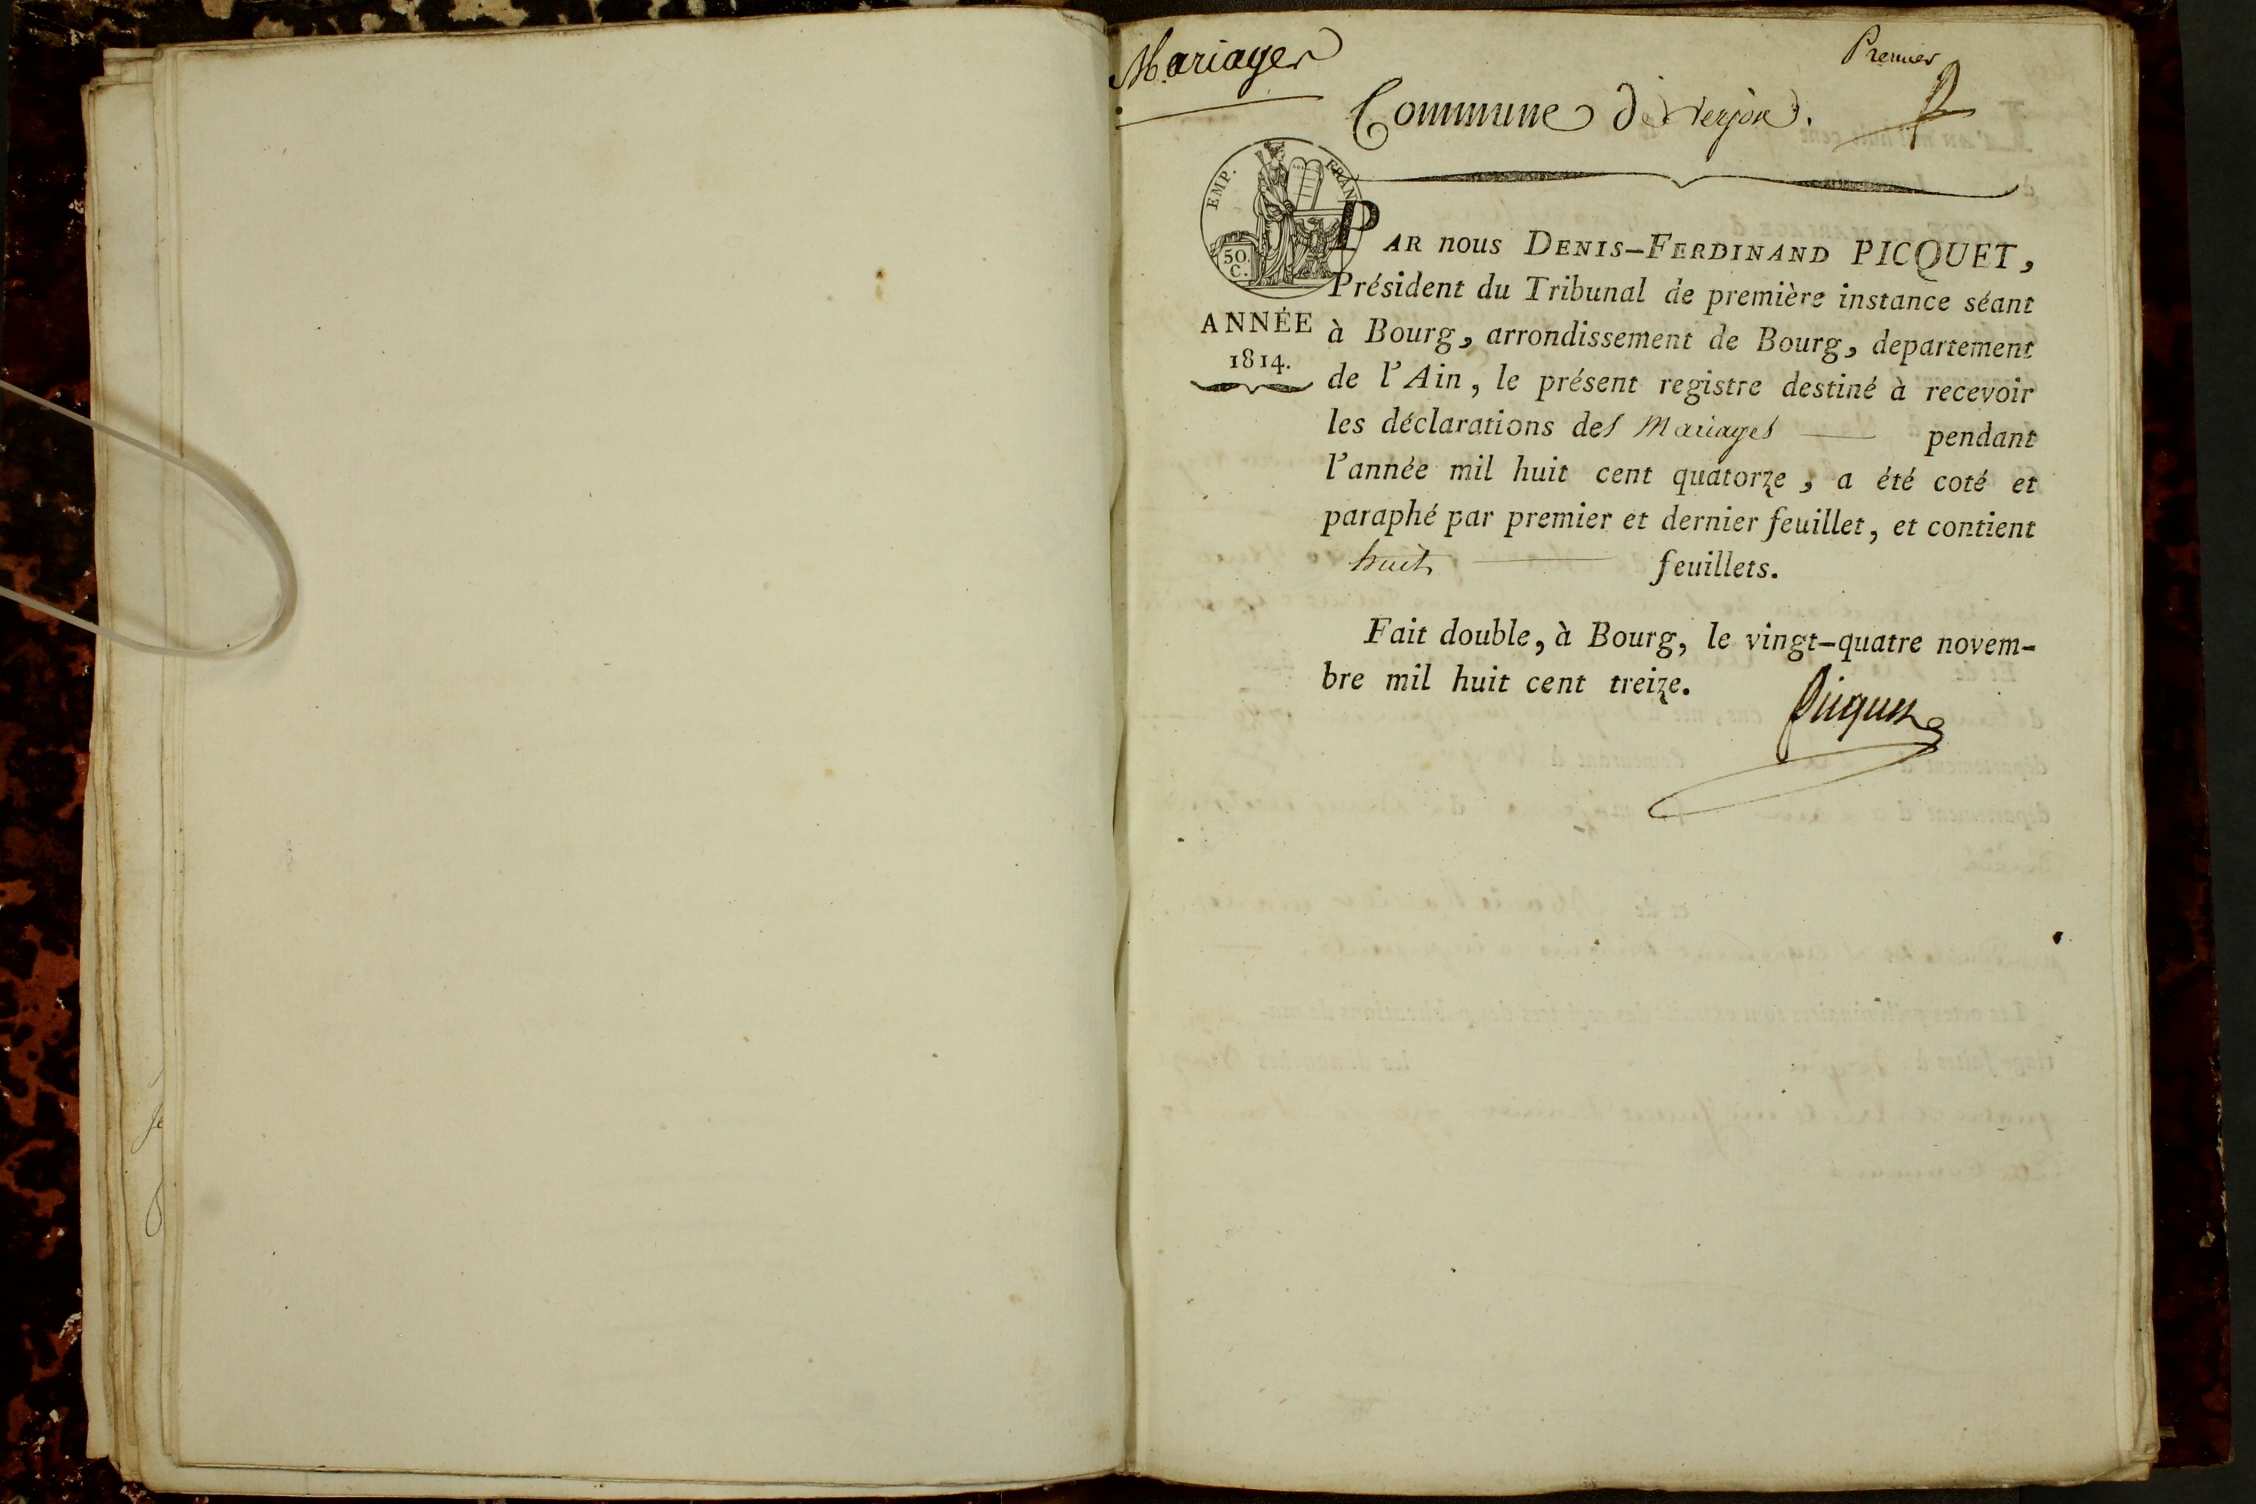 Mariages
Premier
Commune de Verjon.
EMP. FRAN
50.
C.
ANNÉE
1814.
PAR nous DENIS-FERDINAND PICQUET,
Président du Tribunal de première instance séant
à Bourg, arrondissement de Bourg, departement
de l'Ain, le présent registre destiné à recevoir
les déclarations des Mariages — pendant
l'année mil huit cent quatorze, a été coté et
paraphé par premier et dernier feuillet, et contient
huit — feuillets.
Fait double, à Bourg, le vingt-quatre novem-
bre mil huit cent treize.
Picquet